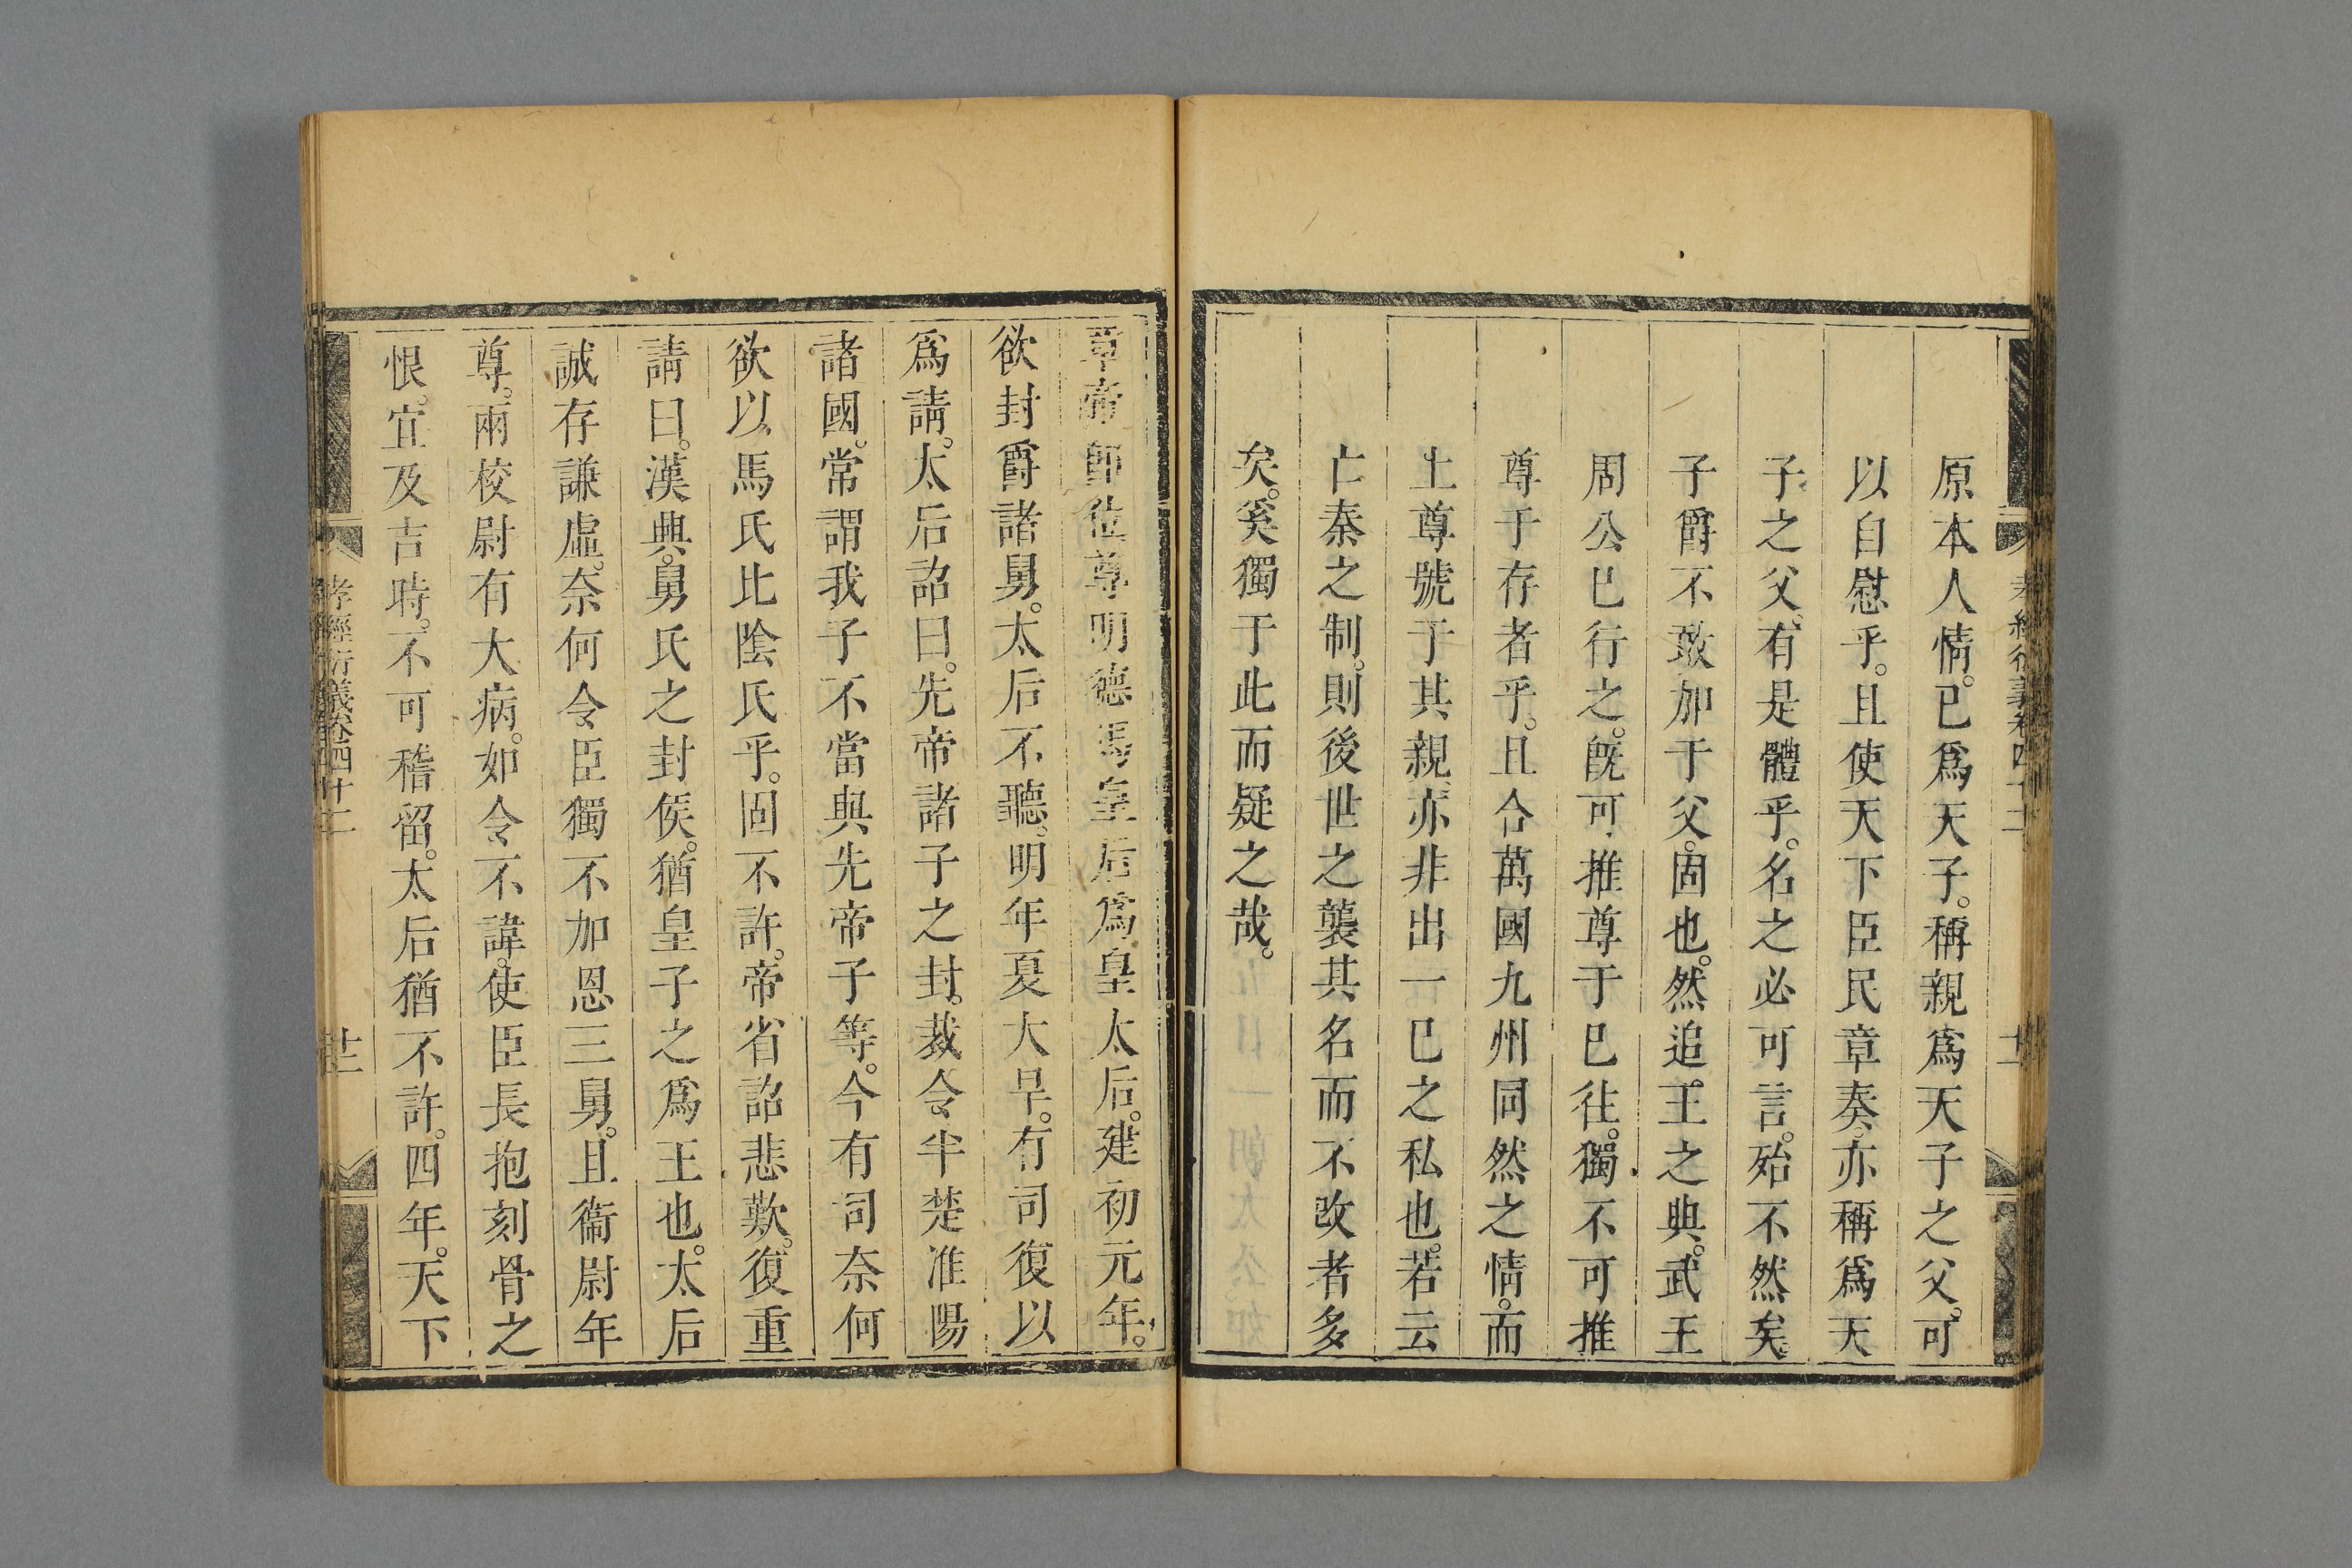 原本人情。已爲天子。稱親爲天子之父。可
以自慰乎。且使天下臣民章奏。亦稱爲天
子之父。有是體乎。名之必可言。殆不然矣。
子爵不敢加于父。固也。然追王之典。武王
周公已行之。旣可推尊于已往。獨不可推
尊于存者乎。且合萬國九州同然之情。而
上尊號于其親。亦非出一已之私也。若云
亡秦之制。則後世之襲其名而不改者多
矣。奚獨于此而疑之哉。
章帝卽位尊明德馬皇后爲皇太后。建初元年。
欲封爵諸舅。太后不聽。明年夏大旱。有司復以
爲請。太后詔曰。先帝諸子之封。裁令半楚淮陽
諸國。常謂我子不當與先帝子等。今有司奈何
欲以馬氏比陰氏乎。固不許。帝省詔悲歎。復重
請曰。漢興。舅氏之封侯。猶皇子之爲王也。太后
誠存謙虛。奈何令臣獨不加恩三舅。且衞尉年
尊。兩校尉有大病。如令不諱。使臣長抱刻骨之
恨。宜及吉時。不可稽留。太后猶不許。四年。天下
孝經衍義卷四十二